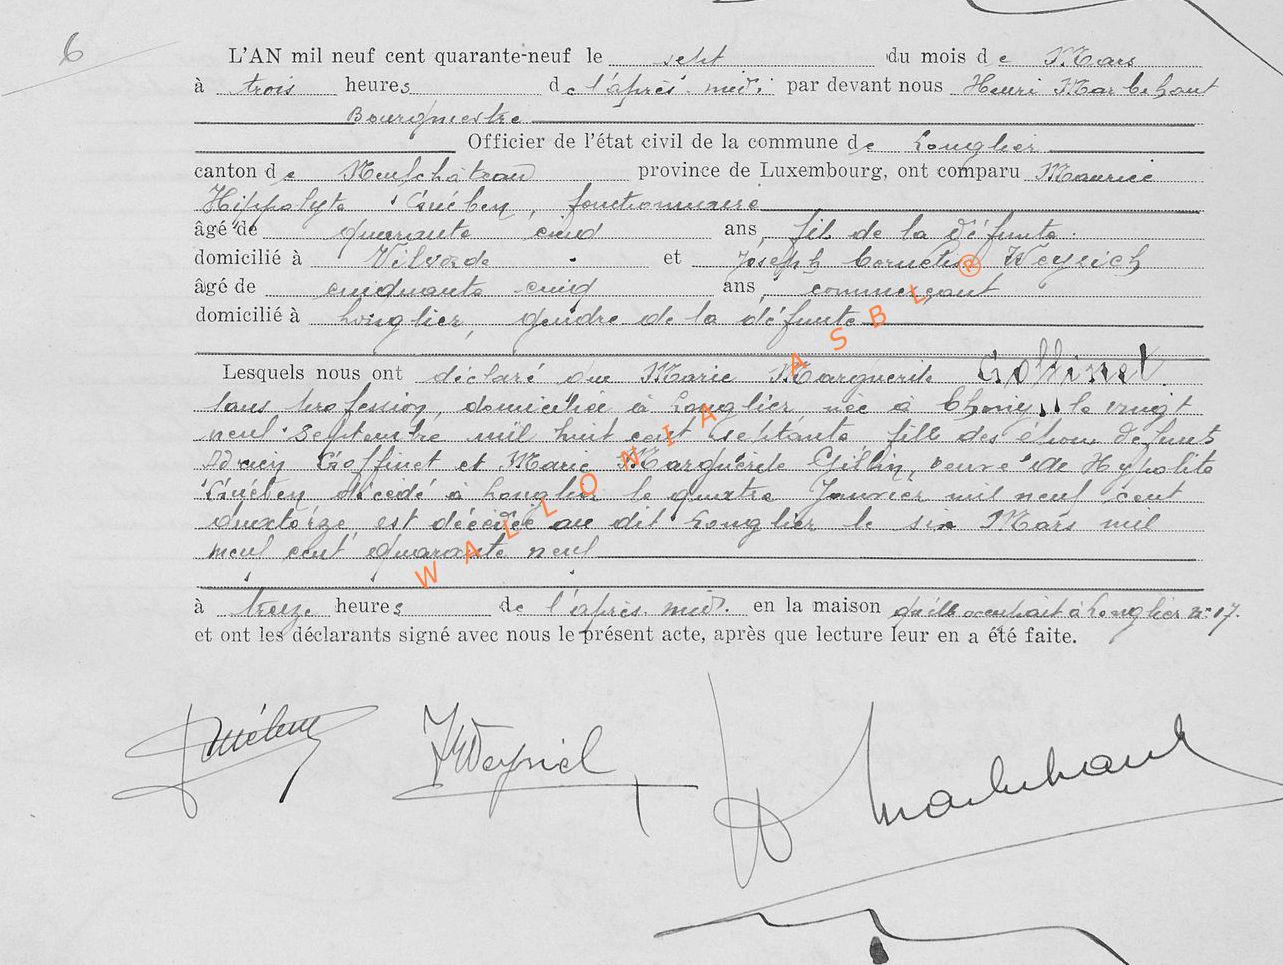 6
L'AN mil neuf cent quarante-neuf le sept du mois de Mars
à trois heures de l'après-midi par devant nous Henri Marbehant
Bourgmestre
Officier de l'état civil de la commune de Longlier
canton de Neufchâteau province de Luxembourg, ont comparu Maurice
Hippolyte Guében, fonctionnaire
âgé de quarante cinq ans, fils de la défunte
domicilié à Vilvorde et Joseph Cornélis Weyrich
âgé de cinquante cinq ans, commerçant
domicilié à Longlier, gendre de la défunte
Lesquels nous ont déclaré que Marie Marguerite Goffinet
sans profession, domiciliée à Longlier, née à le vingt
neuf Septembre mil huit cent septante, fille des époux défunts
Adrien Goffinet et Marie Marguerite Gillin, veuve de Hypolite
Guében décédé à Longlier le quatre Janvier mil neuf cent
quatorze, est décédée au dit Longlier le six Mars mil
neuf cent quarante neuf
à treize heures de l'après-midi. en la maison qu'elle occupait à Longlier n° 17.
et ont les déclarants signé avec nous le présent acte, après que lecture leur en a été faite.
Guében JWeyrich Marbehant
WALLONIA ASBL ®